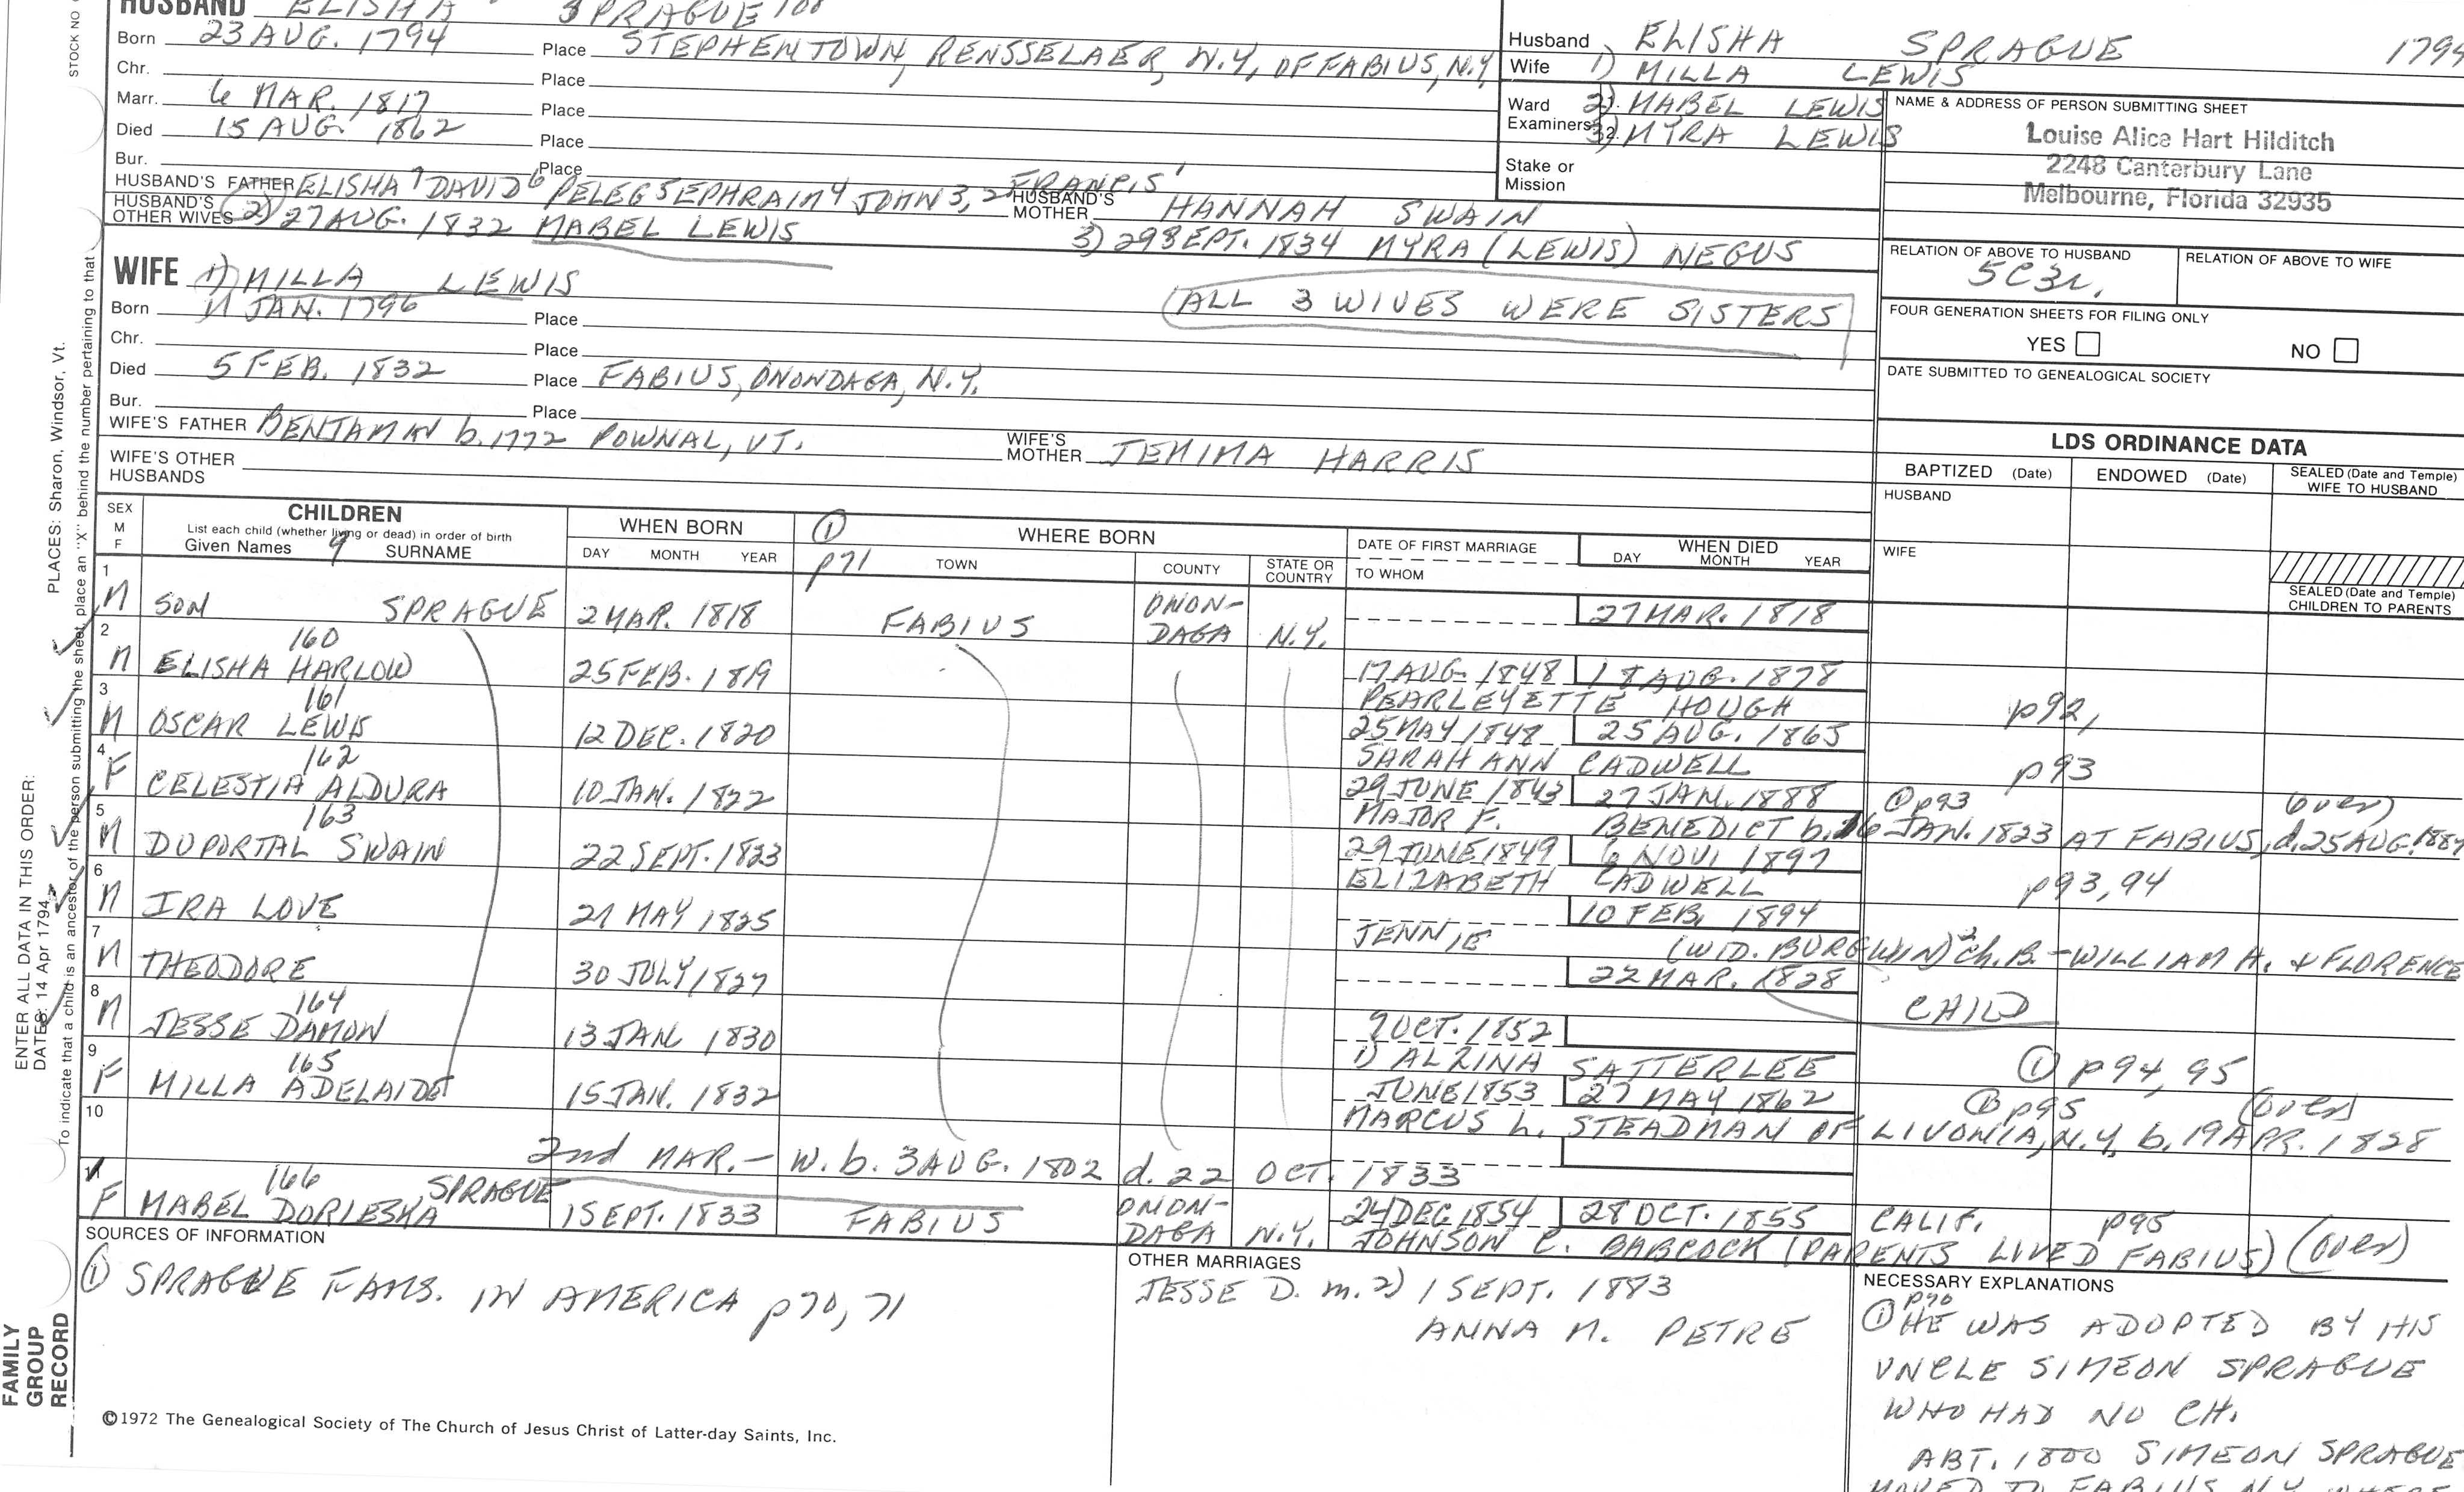 HUSBAND ELISHA SPRAGUE
Born 23 AUG. 1794 Place STEPHENTOWN, RENSSELAER, N.Y, OF FABIUS, N.Y
Chr. Place
Marr. 6 MAR. 1817 Place
Died 15 AUG. 1862 Place
Bur. Place
HUSBAND'S FATHER ELISHA 7 DAVID 6 PELEG 5 EPHRAIM 4 JOHN 3, 2 FRANCIS 1 HUSBAND'S MOTHER HANNAH SWAIN
HUSBAND'S OTHER WIVES 2) 27 AUG. 1832 MABEL LEWIS 3) 29 SEPT. 1834 MYRA (LEWIS) NEGUS
WIFE 1) MILLA LEWIS
ALL 3 WIVES WERE SISTERS
Born 11 JAN. 1796 Place
Chr. Place
Died 5 FEB. 1832 Place FABIUS, ONONDAGA, N.Y.
Bur. Place
WIFE'S FATHER BENJAMIN b. 1772 POWNAL, VT. WIFE'S MOTHER JEMIMA HARRIS
WIFE'S OTHER HUSBANDS
Husband ELISHA SPRAGUE 1794
Wife 1) MILLA LEWIS
Ward 2) MABEL LEWIS
Examiners 3) MYRA LEWIS
Stake or Mission
NAME & ADDRESS OF PERSON SUBMITTING SHEET
Louise Alice Hart Hilditch
2248 Canterbury Lane
Melbourne, Florida 32935
RELATION OF ABOVE TO HUSBAND RELATION OF ABOVE TO WIFE
5C3r.
FOUR GENERATION SHEETS FOR FILING ONLY
YES NO
DATE SUBMITTED TO GENEALOGICAL SOCIETY
LDS ORDINANCE DATA
BAPTIZED (Date) ENDOWED (Date) SEALED (Date and Temple) WIFE TO HUSBAND
HUSBAND
WIFE
SEALED (Date and Temple) CHILDREN TO PARENTS
SEX M F
CHILDREN
List each child (whether living or dead) in order of birth
Given Names 9 SURNAME
WHEN BORN
DAY MONTH YEAR
① p71
WHERE BORN
TOWN COUNTY STATE OR COUNTRY
DATE OF FIRST MARRIAGE
TO WHOM
WHEN DIED
DAY MONTH YEAR
1 M SON SPRAGUE 2 MAR. 1818 FABIUS ONON-DAGA N.Y. 27 MAR. 1818
2 160
M ELISHA HARLOW 25 FEB. 1819 17 AUG. 1848 18 AUG. 1878
PEARLEYETTE HOUGH p92,
3 161
M OSCAR LEWIS 12 DEC. 1820 25 MAY 1848 25 AUG. 1865
SARAH ANN CADWELL p93
4 162
F CELESTIA ALDURA 10 JAN. 1822 29 JUNE 1843 27 JAN. 1888 ① p93 (over)
MAJOR F. BENEDICT b. 26 JAN. 1823 AT FABIUS, d. 25 AUG.
5 163
M DUPORTAL SWAIN 22 SEPT. 1823 29 JUNE 1849 6 NOV. 1897
ELIZABETH CADWELL p93,94
6 M IRA LOVE 21 MAY 1825 10 FEB. 1894
JENNIE (WID. BURGWIN) 2 ch. B. - WILLIAM H. & FLORENCE
7 M THEODORE 30 JULY 1827 22 MAR. 1828 CHILD
8 164
M JESSE DAMON 13 JAN 1830 9 OCT. 1852
1) ALZINA SATTERLEE ① p94, 95
9 165
F MILLA ADELAIDE 15 JAN. 1832 JUNE 1853 27 MAY 1862 ① p95 (over)
MARCUS L. STEADMAN OF LIVONIA, N.Y. b. 19 APR. 1828
10
2nd MAR. - W. b. 3 AUG. 1802 d. 22 OCT. 1833
11 166
F MABEL DORLESKA SPRAGUE 1 SEPT. 1833 FABIUS ONON-DAGA N.Y. 24 DEC 1854 28 OCT. 1855 CALIF. p95
JOHNSON C. BABCOCK (PARENTS LIVED FABIUS) (over)
SOURCES OF INFORMATION
① SPRAGUE FAMS. IN AMERICA p70, 71
OTHER MARRIAGES
JESSE D. m. 2) 1 SEPT. 1883
ANNA M. PETRE
NECESSARY EXPLANATIONS
① p70 HE WAS ADOPTED BY HIS
UNCLE SIMEON SPRAGUE
WHO HAD NO CH.
ABT. 1800 SIMEON SPRAGUE
MOVED TO FABIUS N.Y. WHERE
©1972 The Genealogical Society of The Church of Jesus Christ of Latter-day Saints, Inc.
FAMILY GROUP RECORD
ENTER ALL DATA IN THIS ORDER:
DATES: 14 Apr 1794
PLACES: Sharon, Windsor, Vt.
To indicate that a child is an ancestor of the person submitting the sheet, place an "X" behind the number pertaining to that
STOCK NO